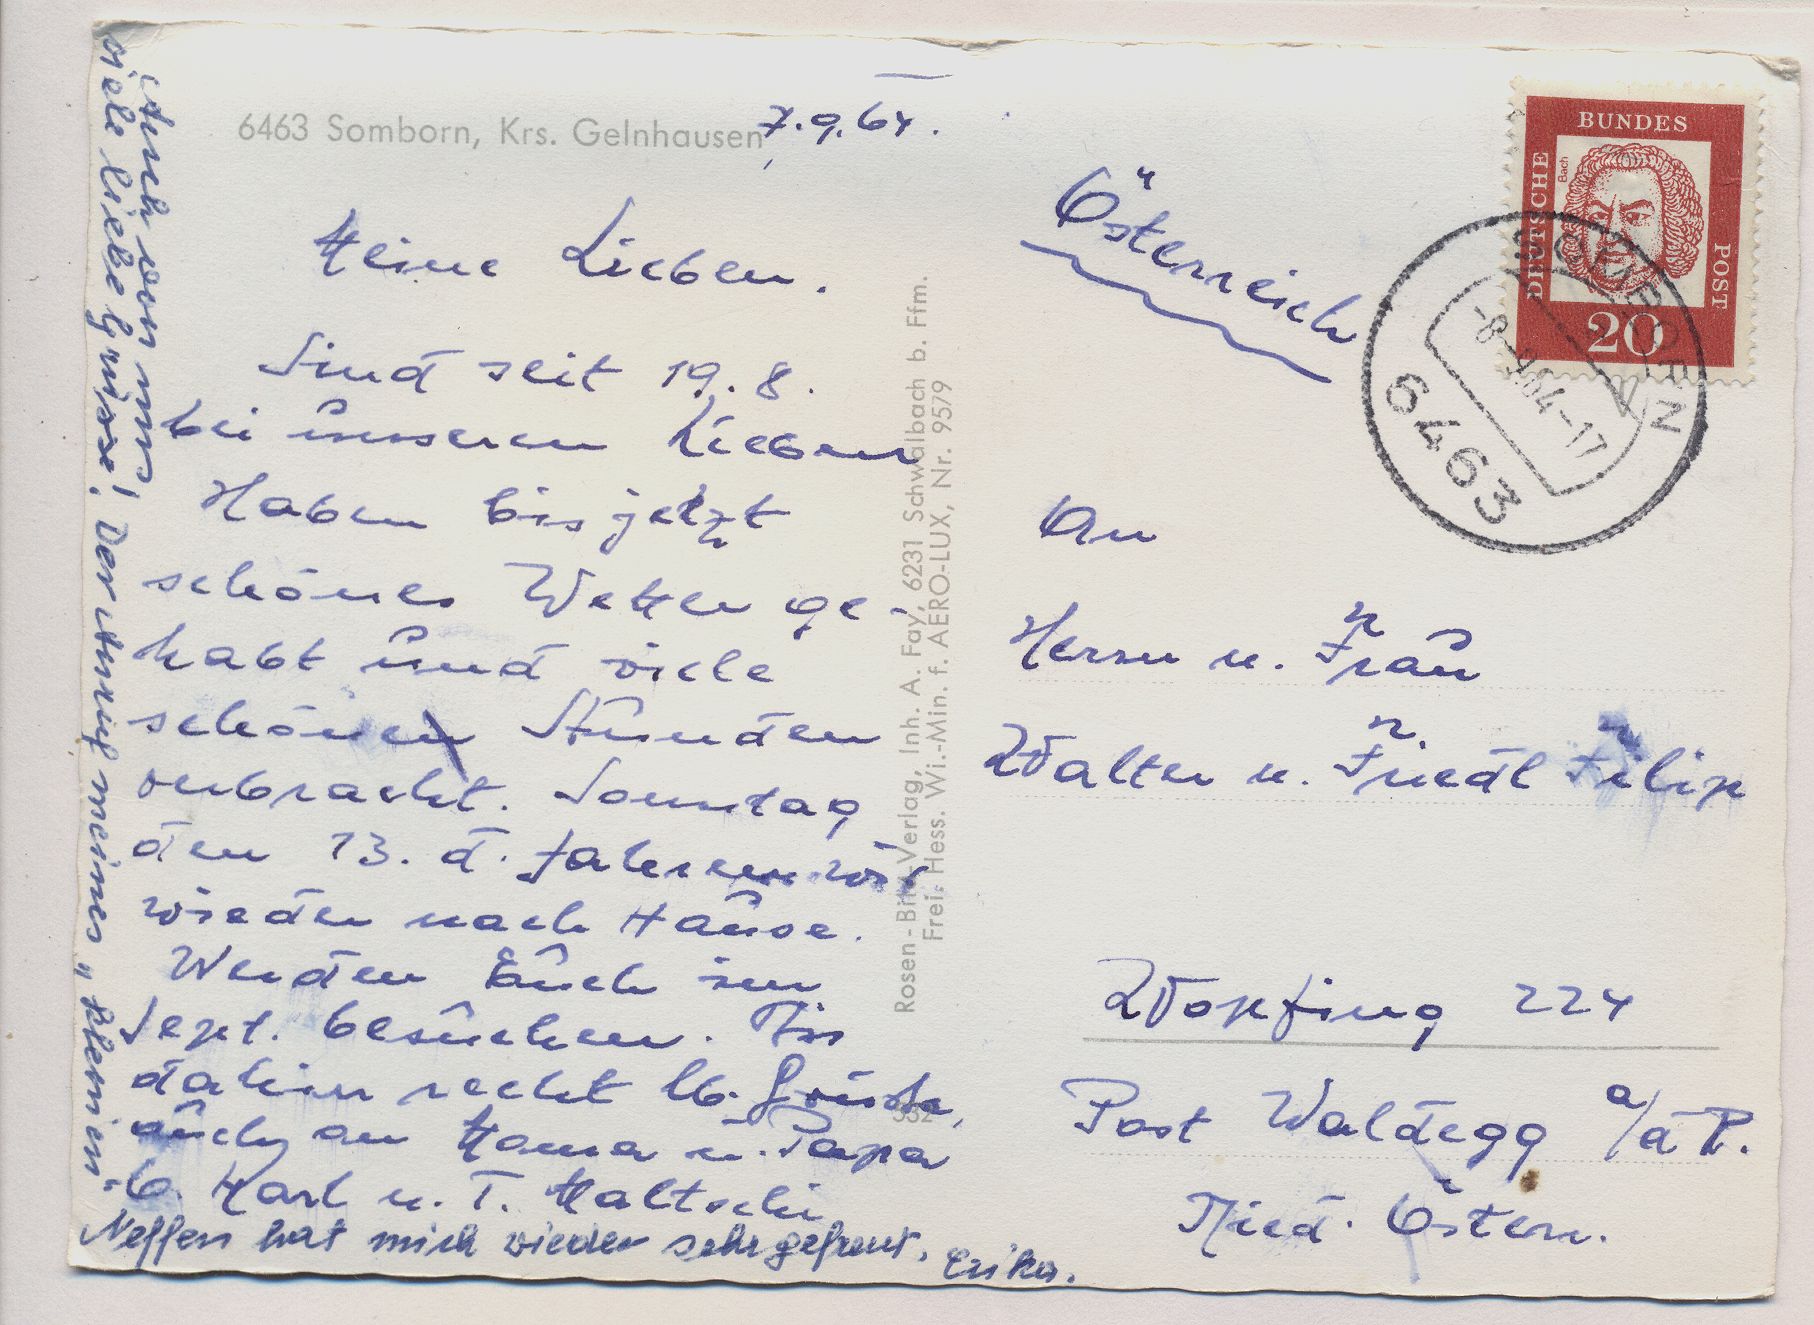 6463 Somborn, Krs. Gelnhausen
7.9.64.
Meine Lieben.
Sind seit 19.8.
bei unseren Lieben
Haben bis jetzt
schönes Wetter ge-
habt und viele
schöne Stunden
verbracht. Sonntag
den 13. d. fahren wir
wieder nach Hause.
Werden Euch im
Sept. besuchen. Bis
dahin recht lb. Grüße,
auch an Mama u. Papa
Karl u. T.
Auch von uns!
viele liebe Grüsse! Der Anruf meines "kleinen"
Neffen hat mich wieder sehr gefreut. Erika.
Rosen-Bild-Verlag, Inh. A. Fay, 6231 Schwalbach b. Ffm.
Frei: Hess. Wi.-Min. f. AERO-LUX, Nr. 9579
Österreich
DEUTSCHE BUNDES POST
Bach
20
SOMBORN
-8.-9.64-17
6463
An
Herrn u. Frau
Walter u. Friedl Filip
Wopfing 224
Post Waldegg a/d P.
Nied. Österr.